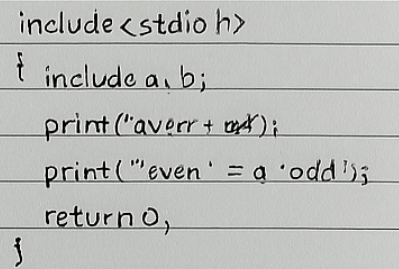 include<stdio h>
{ include a, b;
print("averr + );
print("'even' = a 'odd');
return 0,
}